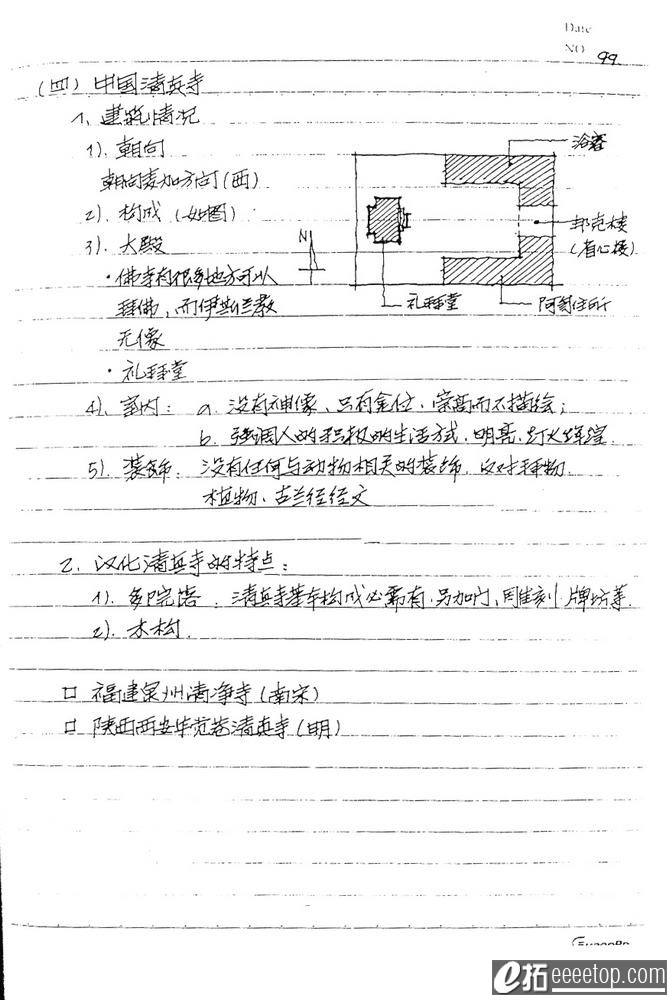 Date
NO 99
(四) 中国清真寺
1、建筑情况
1). 朝向
朝向麦加方向(西)
2). 构成 (如图)
3). 大殿
·佛寺有很多地方可以
拜佛,而伊斯兰教
无像
·礼拜堂
浴室
邦克楼
(省心楼)
N
礼拜堂
阿訇住所
4). 室内: a. 没有神像、只有龛位、崇高而不描绘;
b. 强调人的积极的生活方式,明亮,灯火辉煌
5). 装饰: 没有任何与动物相关的装饰,
植物、古兰经经文
2. 汉化清真寺的特点:
1). 多院落: 清真寺基本构成必需有,另加门、雕刻、牌坊等.
2). 木构.
口 福建泉州清净寺(南宋)
口 陕西西安华觉巷清真寺(明)
e拓 eeeetop.com